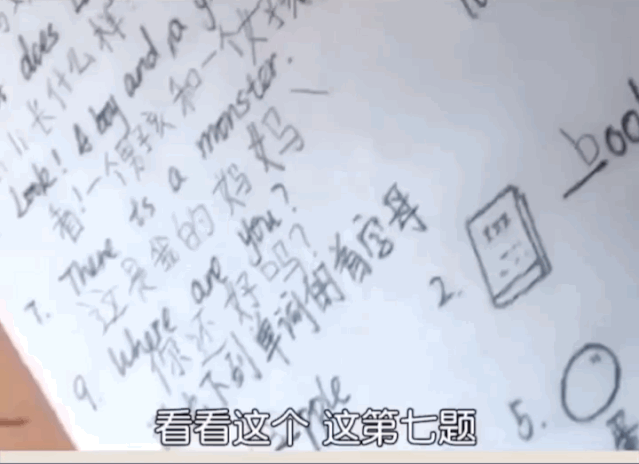 does
长什么样
Look! A boy and a g
看!一个男孩和一个女孩
7. There is a monster.
这是爸的妈妈
9. Where are you?
你还好吗?
下列单词的首字母
pple
2. book
5.
看看这个 这第七题